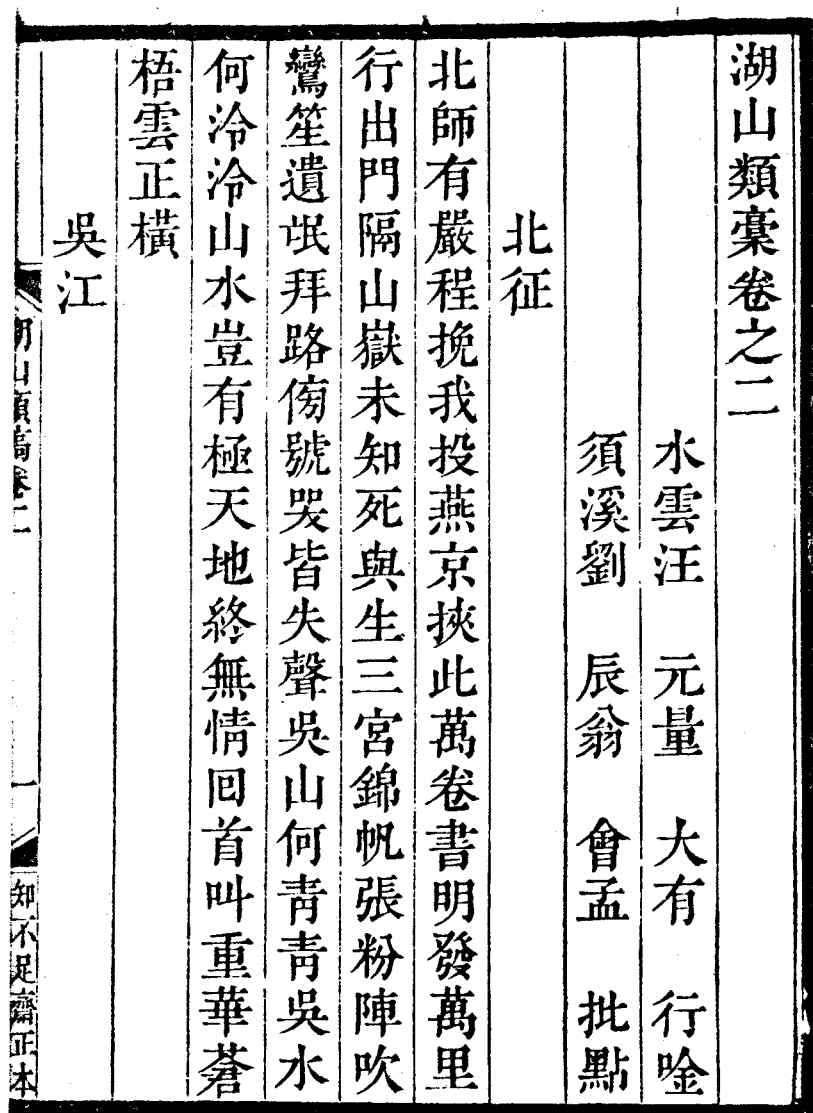 湖山類稾卷之二
水雲汪　元量　大有　行唫
須溪劉　辰翁　會孟　批點
北征
北師有嚴程挽我投燕京挾此萬卷書明發萬里
行出門隔山嶽未知死與生三宮錦帆張粉陣吹
鸞笙遺氓拜路傍號哭皆失聲吳山何青青吳水
何泠泠山水豈有極天地終無情回首叫重華蒼
梧雲正橫
吳江
湖山類稿卷二
一
知不足齋正本